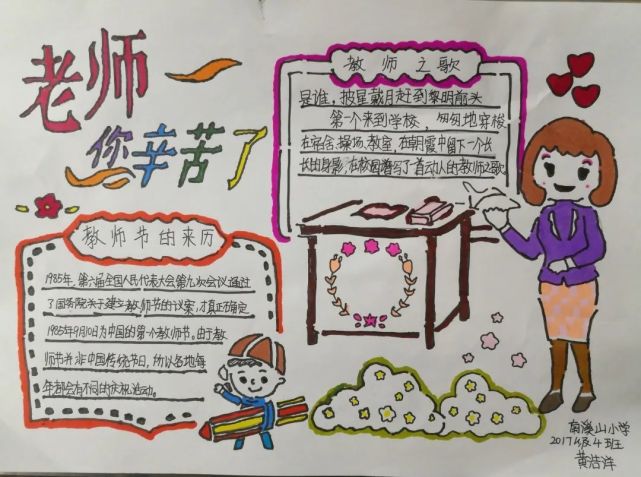 老师
您辛苦了
教师之歌
是谁，披星戴月赶到黎明前头
第一个来到学校，匆匆地穿梭
在宿舍、操场、教室，在朝霞中留下一个长
长的身影，在校园谱写了一首动人的教师之歌。
教师节的来历
1985年，第六届全国人民代表大会第九次会议通过
了国务院关于建立教师节的议案，才真正确定
1985年9月10日为中国的第一个教师节。由于教
师节并非中国传统节日，所以各地每
年都会有不同的庆祝活动。
南溪山小学
2017级4班
黄洁洋